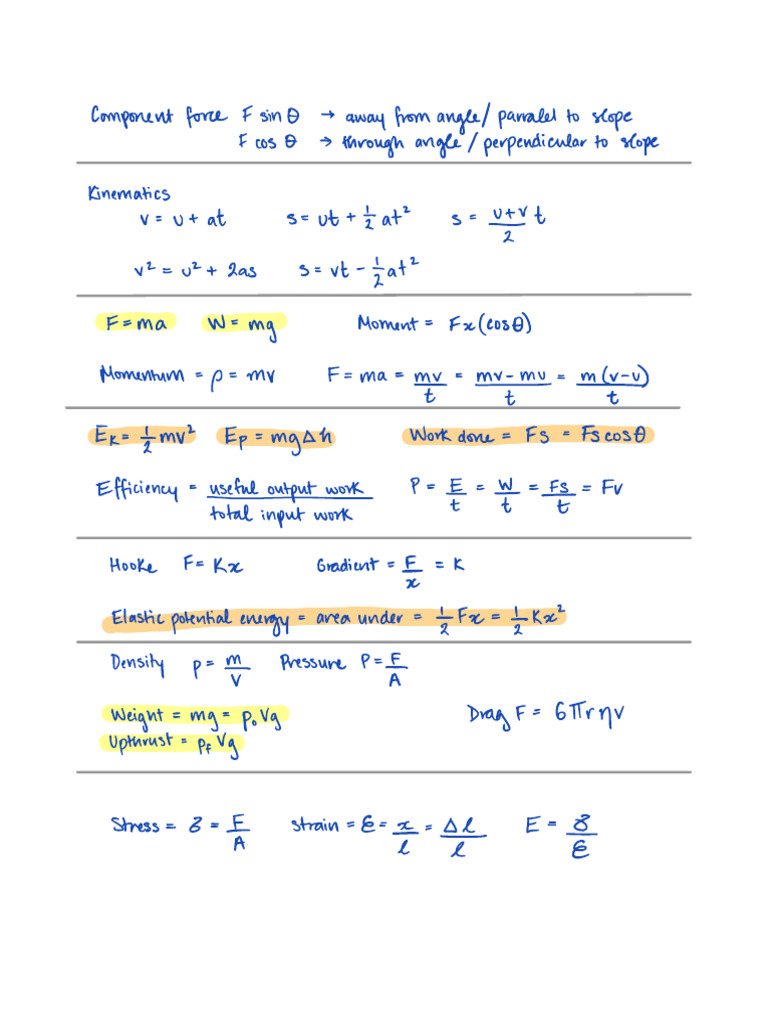 Component force F sin θ → away from angle / parralel to slope
F cos θ → through angle / perpendicular to slope
Kinematics
v = u + at   s = ut + 1/2 at²   s = (u+v)/2 t
v² = u² + 2as   s = vt - 1/2 at²
F = ma   W = mg   Moment = Fx (cosθ)
Momentum = ρ = mv   F = ma = mv/t = (mv - mu)/t = m(v-u)/t
EK = 1/2 mv²   EP = mg∆h   Work done = Fs = Fs cosθ
Efficiency = useful output work / total input work   P = E/t = W/t = Fs/t = Fv
Hooke F = Kx   Gradient = F/x = K
Elastic potential energy = area under = 1/2 Fx = 1/2 Kx²
Density p = m/V   Pressure P = F/A
Weight = mg = p₀Vg   Drag F = 6πrηv
Upthrust = pfVg
Stress = σ = F/A   Strain = ε = x/l = ∆l/l   E = σ/ε